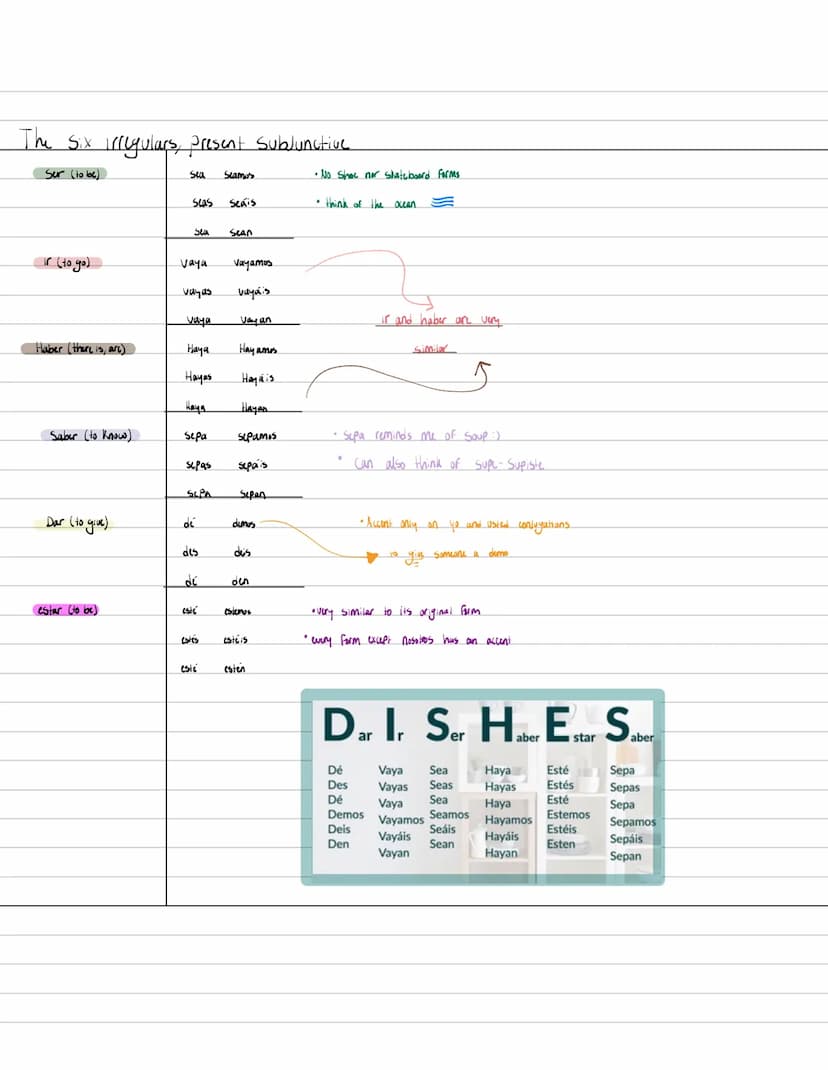 The six irregulars, present subjunctive
Ser (to be)
sea seamos
• No shoe nor skateboard forms
seas seáis
• think of the ocean
sea sean
ir (to go)
vaya vayamos
vayas vayáis
vaya vayan
ir and haber are very
similar
Haber (there is, are)
Haya Hayamos
Hayas Hayáis
Haya Hayan
Saber (to know)
sepa sepamos
• sepa reminds me of soup :)
sepas sepáis
• can also think of supe-supiste
sepa sepan
Dar (to give)
dé demos
• Accent only on yo and usted conjugations
des
to give someone a demo
dé den
estar (to be)
esté estemos
• very similar to its original form
estés estéis
• every form except nosotros has an accent
esté estén
Dar Ir Ser Haber Estar Saber
Dé Vaya Sea Haya Esté Sepa
Des Vayas Seas Hayas Estés Sepas
Dé Vaya Sea Haya Esté Sepa
Demos Vayamos Seamos Hayamos Estemos Sepamos
Deis Vayáis Seáis Hayáis Estéis Sepáis
Den Vayan Sean Hayan Esten Sepan